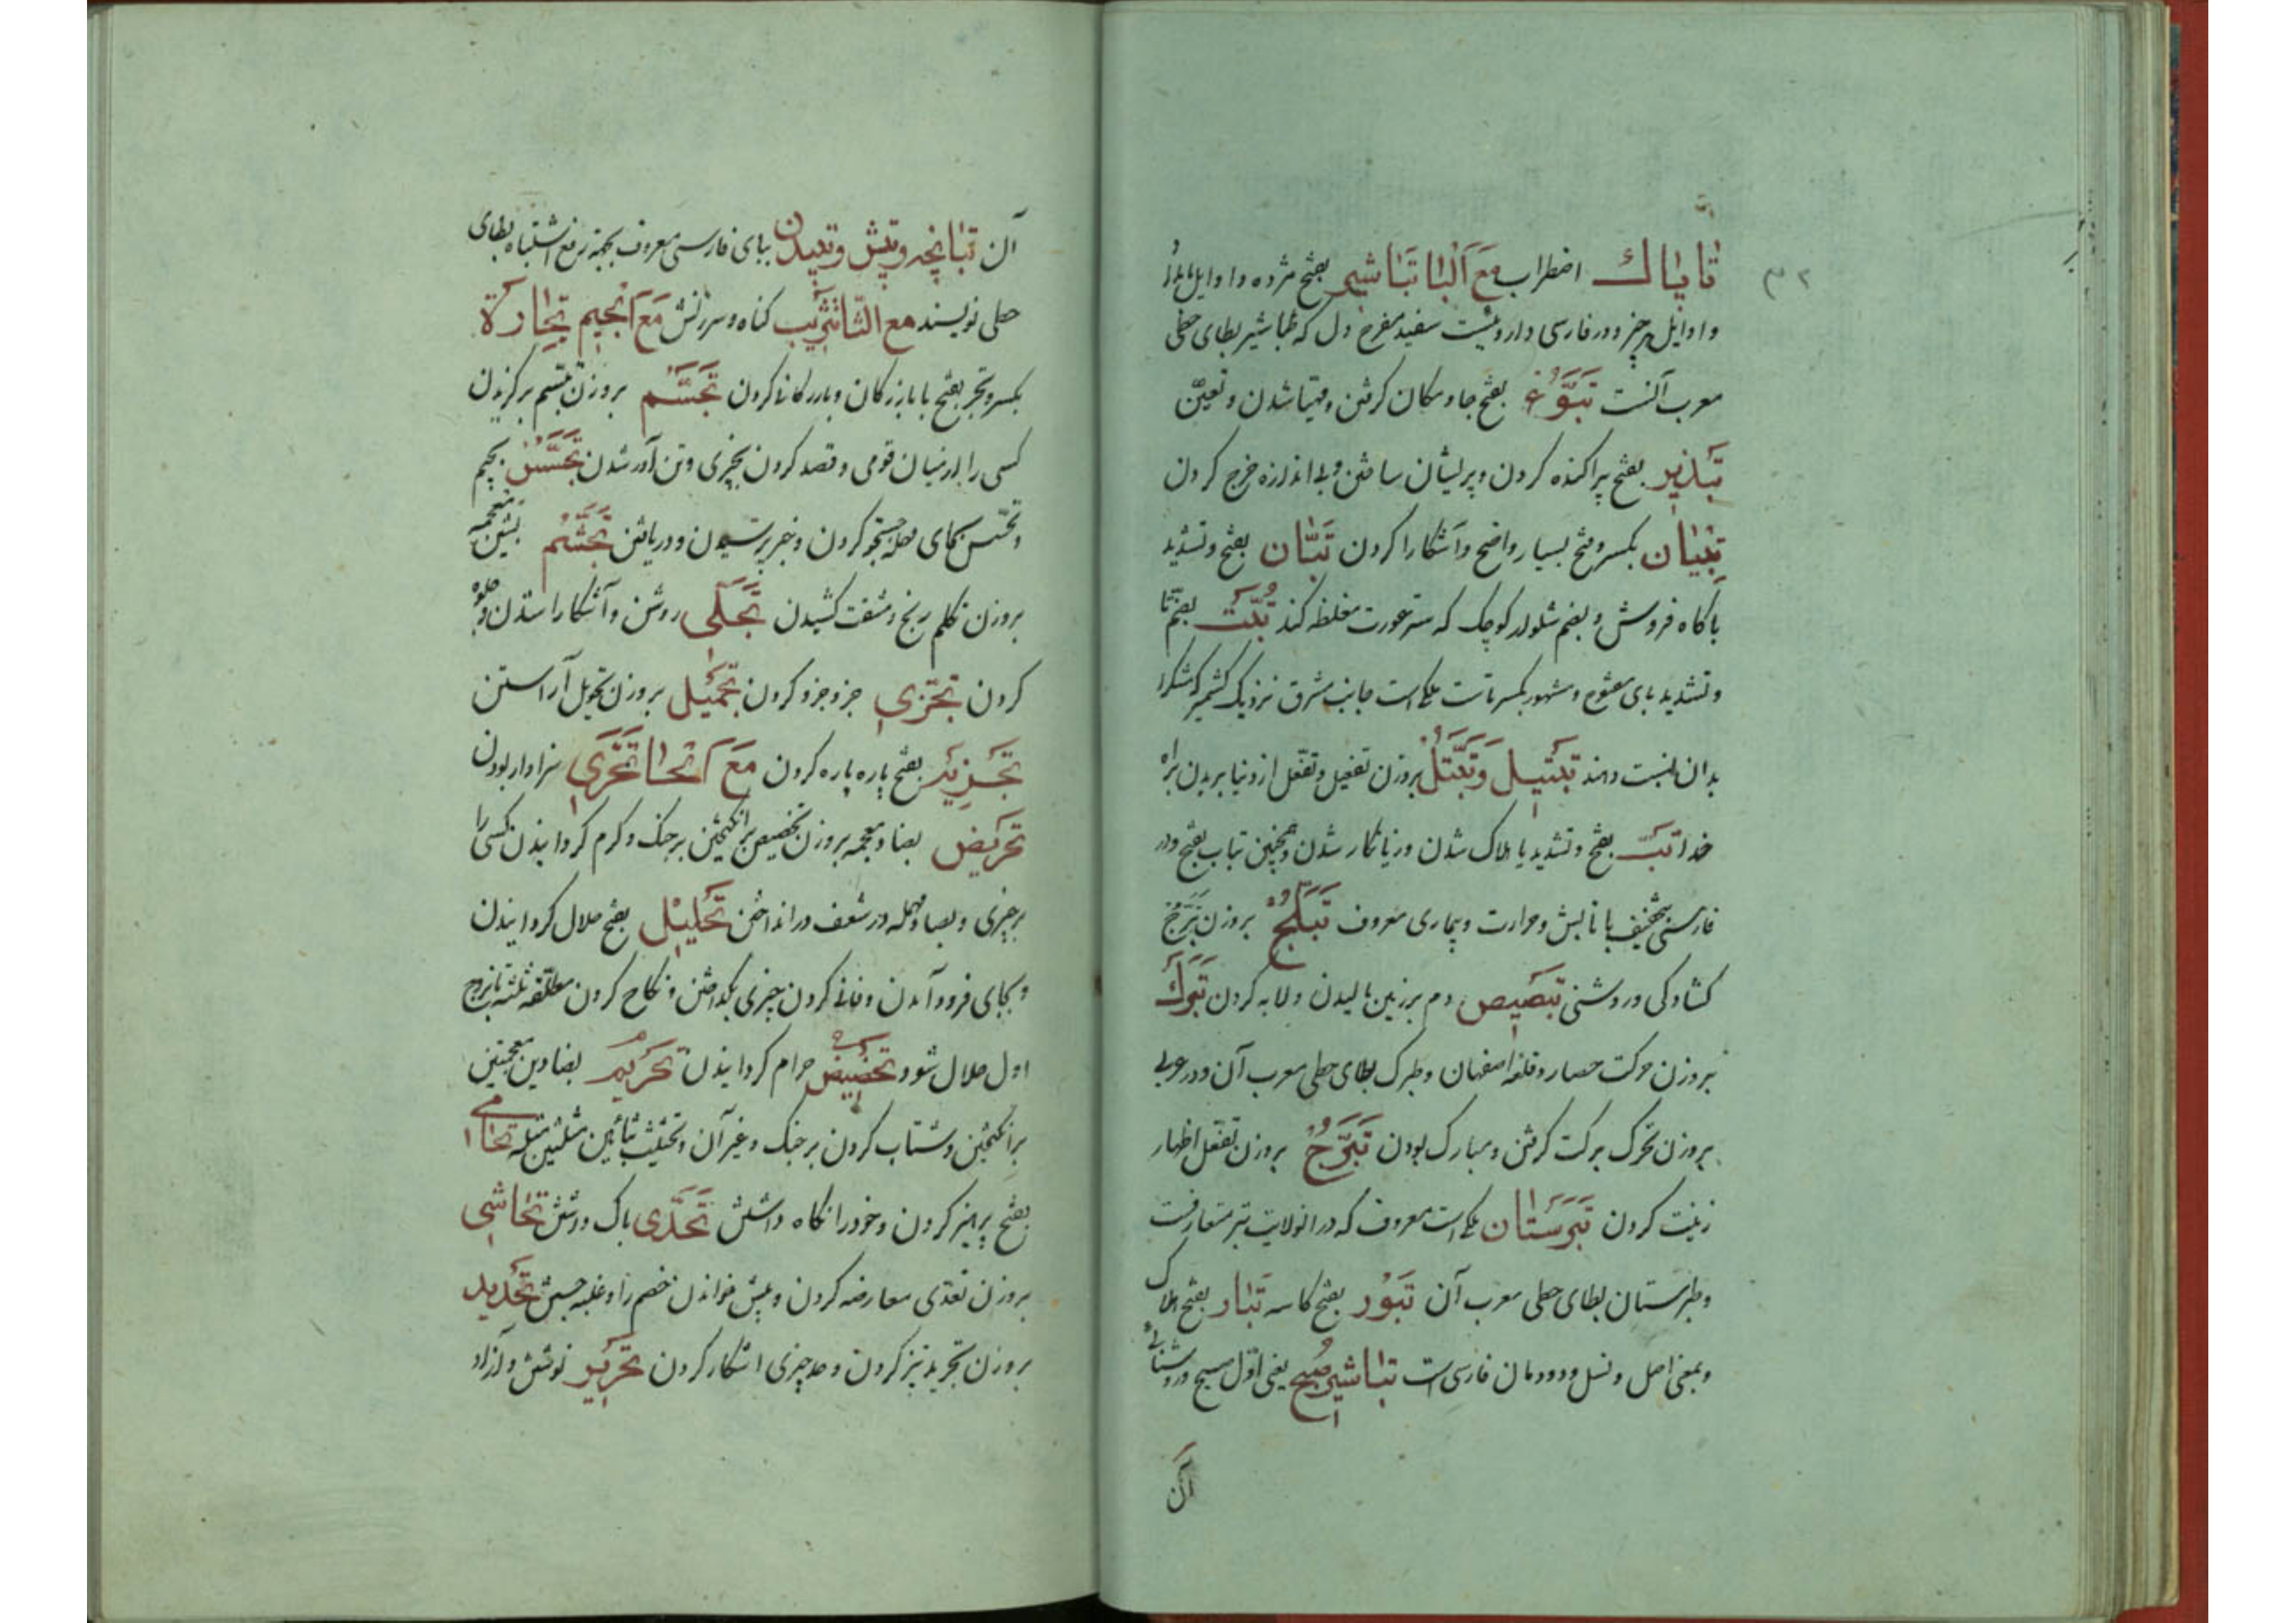 تاپاک اضطراب مع البا تباشیر بفتح مژده و اوایل
و اوایل هر چیز و در فارسی داروئیست سفید مفرح دل که طباشیر بطای حطی
معرب آنست تبوّء بفتح جا و مکان گرفتن و مهیا شدن و تعین
تبذیر بفتح پراکنده کردن و پریشان ساختن و بی اندازه خرج کردن
تبیان بکسر و فتح بسیار واضح و آشکارا کردن تبّان بفتح و تشدید
با کاه فروش و بضم شلوار کوچک که ستر عورت مغلظه کند تُبَّت بضم تا
و تشدید بای مفتوح و مشهور بکسر تاست ملکی است جانب مشرق نزدیک کشمیر که مشک را
بدان نسبت دهند تبتیل و تبتّل بروزن تفعیل و تفعّل از دنیا بریدن براه
خدا تبّ بفتح و تشدید با هلاک شدن و زیانکار شدن و همچنین تباب بفتح و در
فارسی بتخفیف با تابش و حرارت و بیماری معروف تبلّج بروزن تبرّج
گشادگی و روشنی تبصیص دم بر زمین مالیدن و لابه کردن تبرک
بروزن حرکت حصار و قلعه اصفهان و طبرک بطای حطی معرب آن و در عربی
بروزن تحرک برکت گرفتن و مبارک بودن تبرّج بروزن تفعّل اظهار
زینت کردن تبرستان ملکی است معروف که در آنولایت تبر متعارفست
و طبرستان بطای حطی معرب آن تبور بفتح کاسه تبار بفتح هلاک
و بمعنی اصل و نسل و دودمان فارسی است تباشیر صبح یعنی اوّل صبح و روشنائی
آن
آن تپانچه و تپش و تپیدن ببای فارسی معروف بجهة رفع اشتباه بطای
حطی نویسند مع الثا تثریب گناه و سرزنش مع الجیم تجارة
بکسر و تجر بفتح با بازرگان و بازرگانی کردن تجسّم بروزن تبسّم برگزیدن
کسی را از میان قومی و قصد کردن بچیزی و تن آور شدن تجسّس بجیم
و تحسّس بحای مهمله جستجو کردن و خبر پرسیدن و دریافتن تجشّم بشین معجمه
بروزن تکلم رنج و مشقت کشیدن تجلّی روشن و آشکارا شدن و جلوه
کردن تجزی جزو جزو کردن تجمیل بروزن تحویل آراستن
تجزیه بفتح پاره پاره کردن مع الحا تحرّی سزاوار بودن
تحریض بضاد معجمه بروزن تخصیص برانگیختن بر جنگ و گرم گردانیدن کسی را
بر چیزی و بصاد مهمله در شعف درانداختن تحلیل بفتح حلال گردانیدن
و بجای فرود آمدن و فانی کردن چیزی بگداختن و نکاح کردن مطلقه ثلثه تا بزوج
اول حلال شود تحضیض حرام گردانیدن تحریم بضادین معجمتین
برانگیختن و شتاب کردن بر جنگ و غیر آن و تحثیث بثائین مثلثتین مثله تحامی
بفتح پرهیز کردن و خود را نگاه داشتن تحدّی باک داشتن تحاشی
بروزن تعدّی معارضه کردن و پیش خواندن خصم را و غلبه جستن تحدید
بروزن تجرید تیز کردن و حد چیزی آشکار کردن تحریر نوشتن و آزاد
۳۲